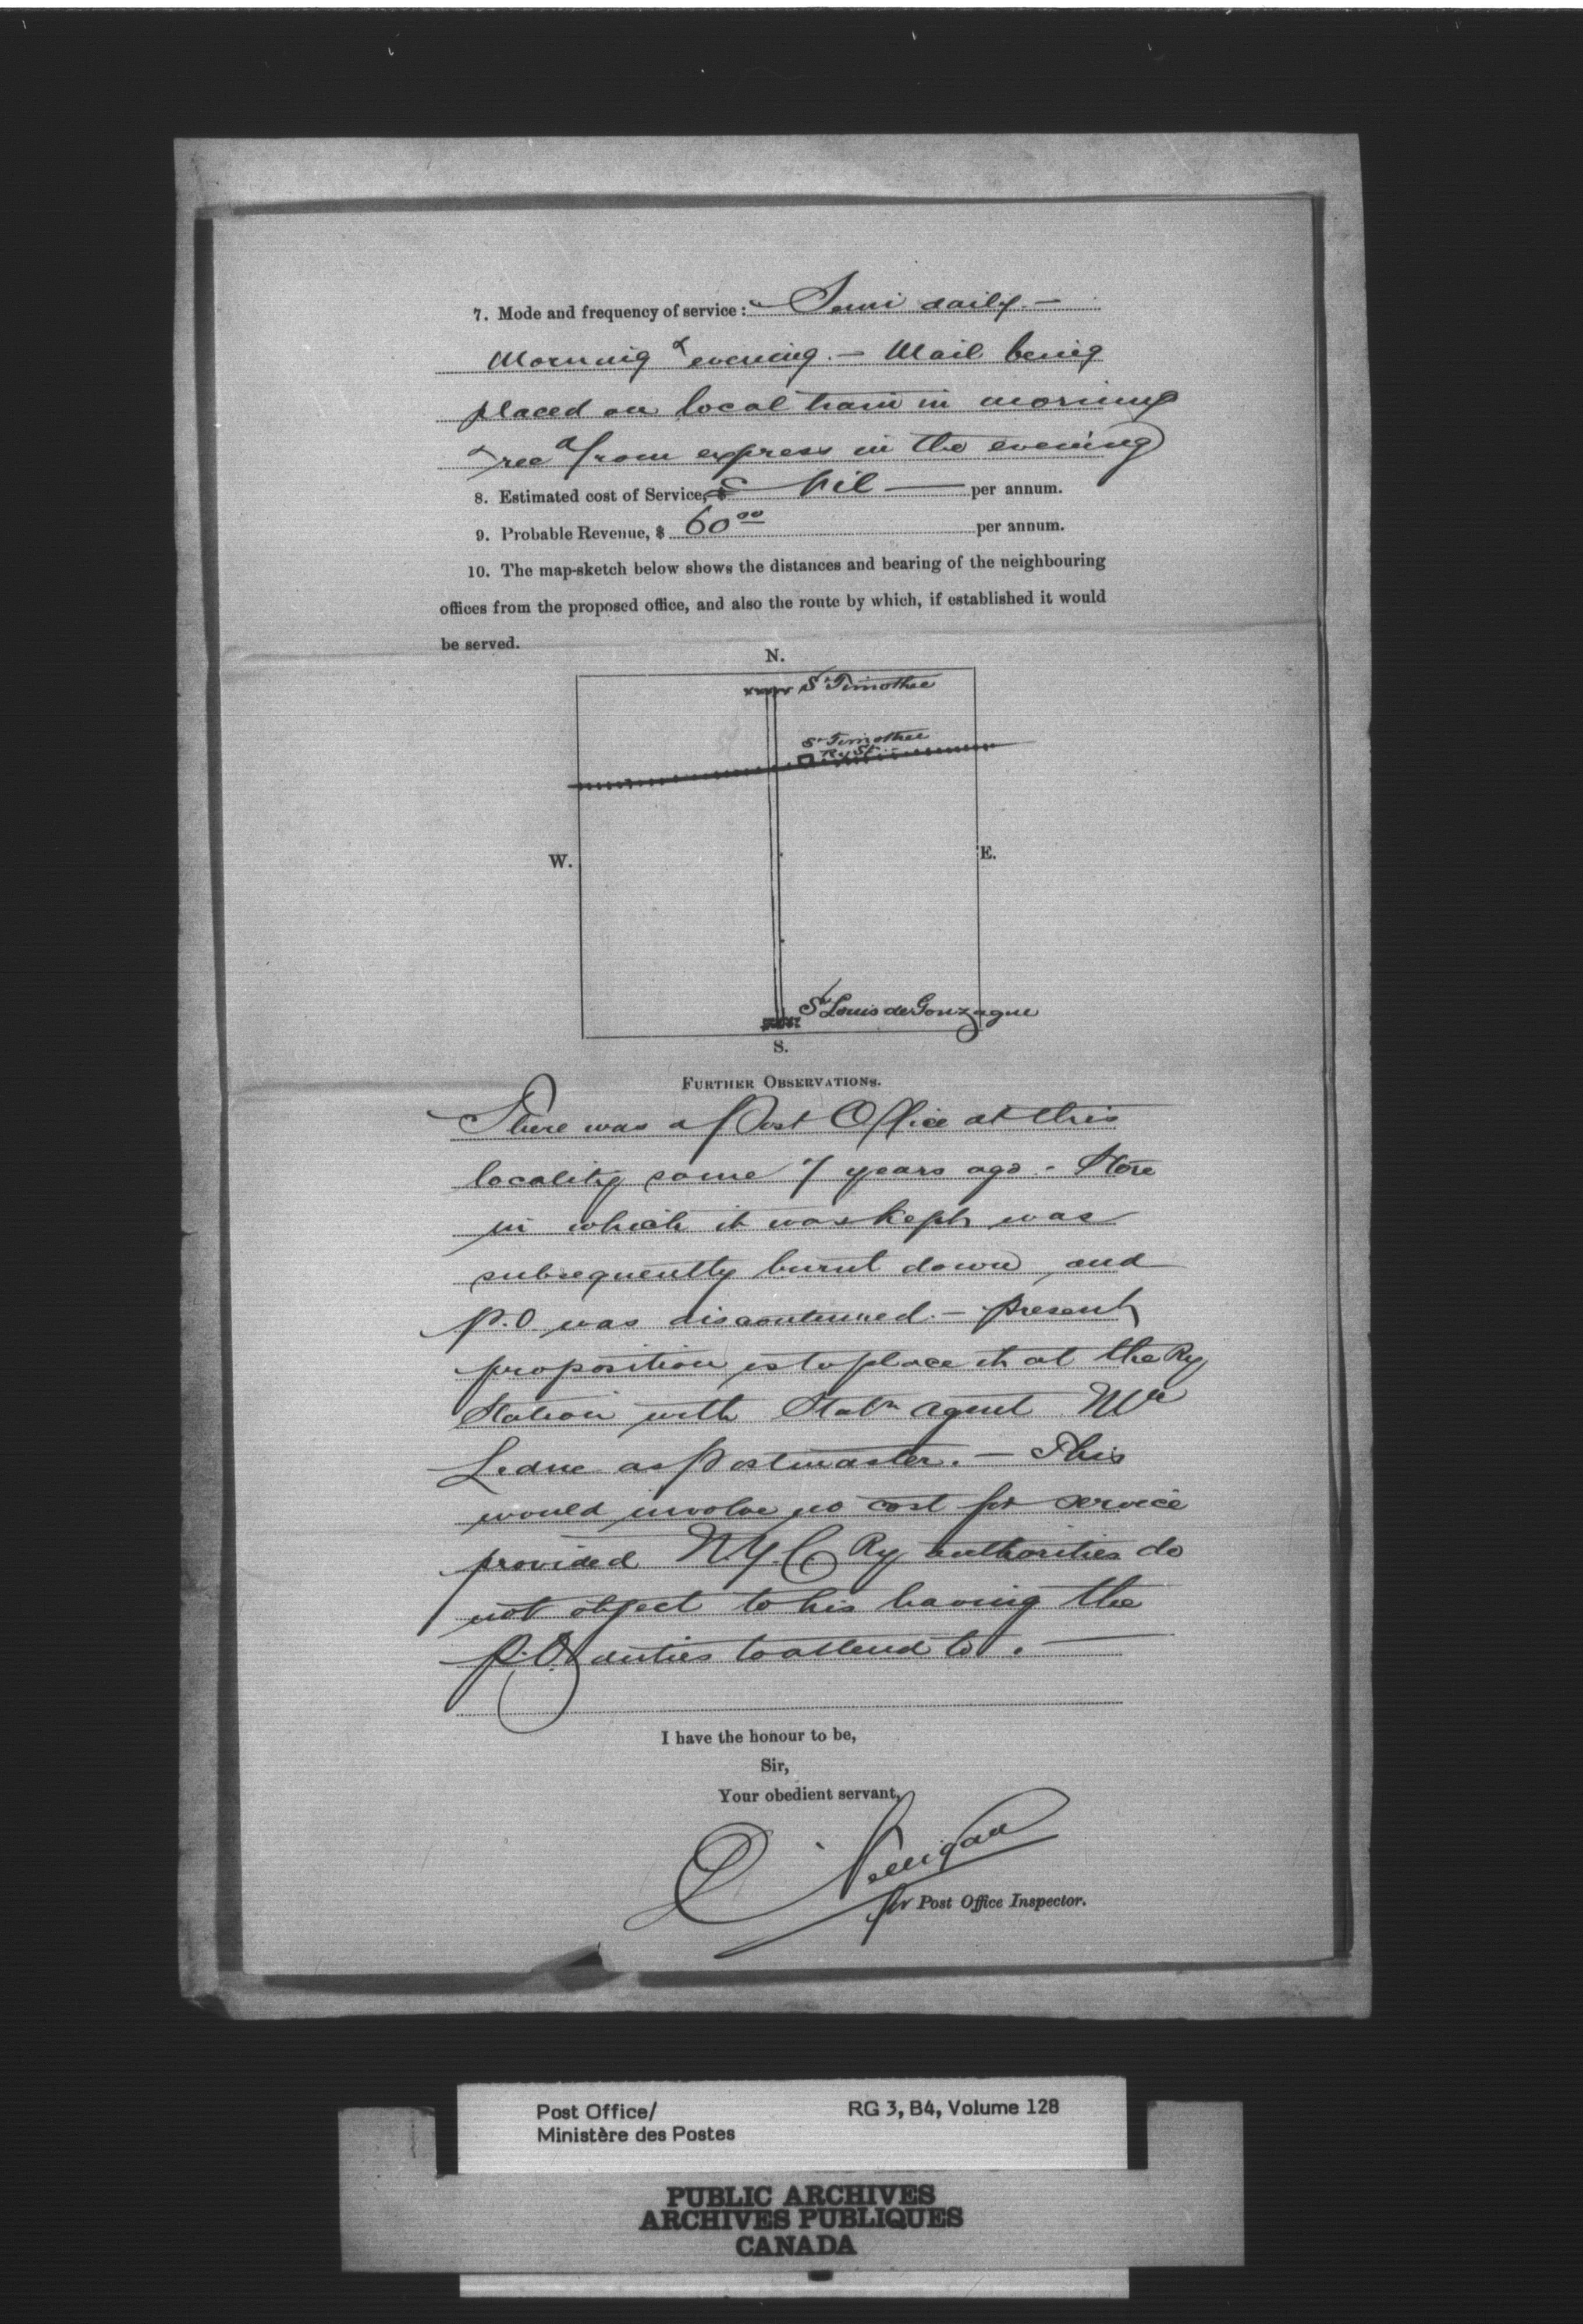 7. Mode and frequency of service: Semi daily. —
Morning & evening. — Mail being
placed on local train in morning
& recd from express in the evening
8. Estimated cost of Service, $ Nil — per annum.
9. Probable Revenue, $ 60 00 per annum.
10. The map-sketch below shows the distances and bearing of the neighbouring
offices from the proposed office, and also the route by which, if established it would
be served.
N.
St Timothee
St Timothee
Ry St.
W.
E.
St Louis de Gonzague
S.
FURTHER OBSERVATIONS.
There was a Post Office at this
locality some 7 years ago. - Store
in which it was kept was
subsequently burnt down and
P.O was discontinued. — present
proposition is to place it at the Ry
Station with Statn agent Mr
as Postmaster. — This
would involve no cost for service
provided N.Y.C Ry authorities do
not object to his having the
P.O. duties to attend to. —
I have the honour to be,
Sir,
Your obedient servant,
for Post Office Inspector.
Post Office/
Ministère des Postes
RG 3, B4, Volume 128
PUBLIC ARCHIVES
ARCHIVES PUBLIQUES
CANADA